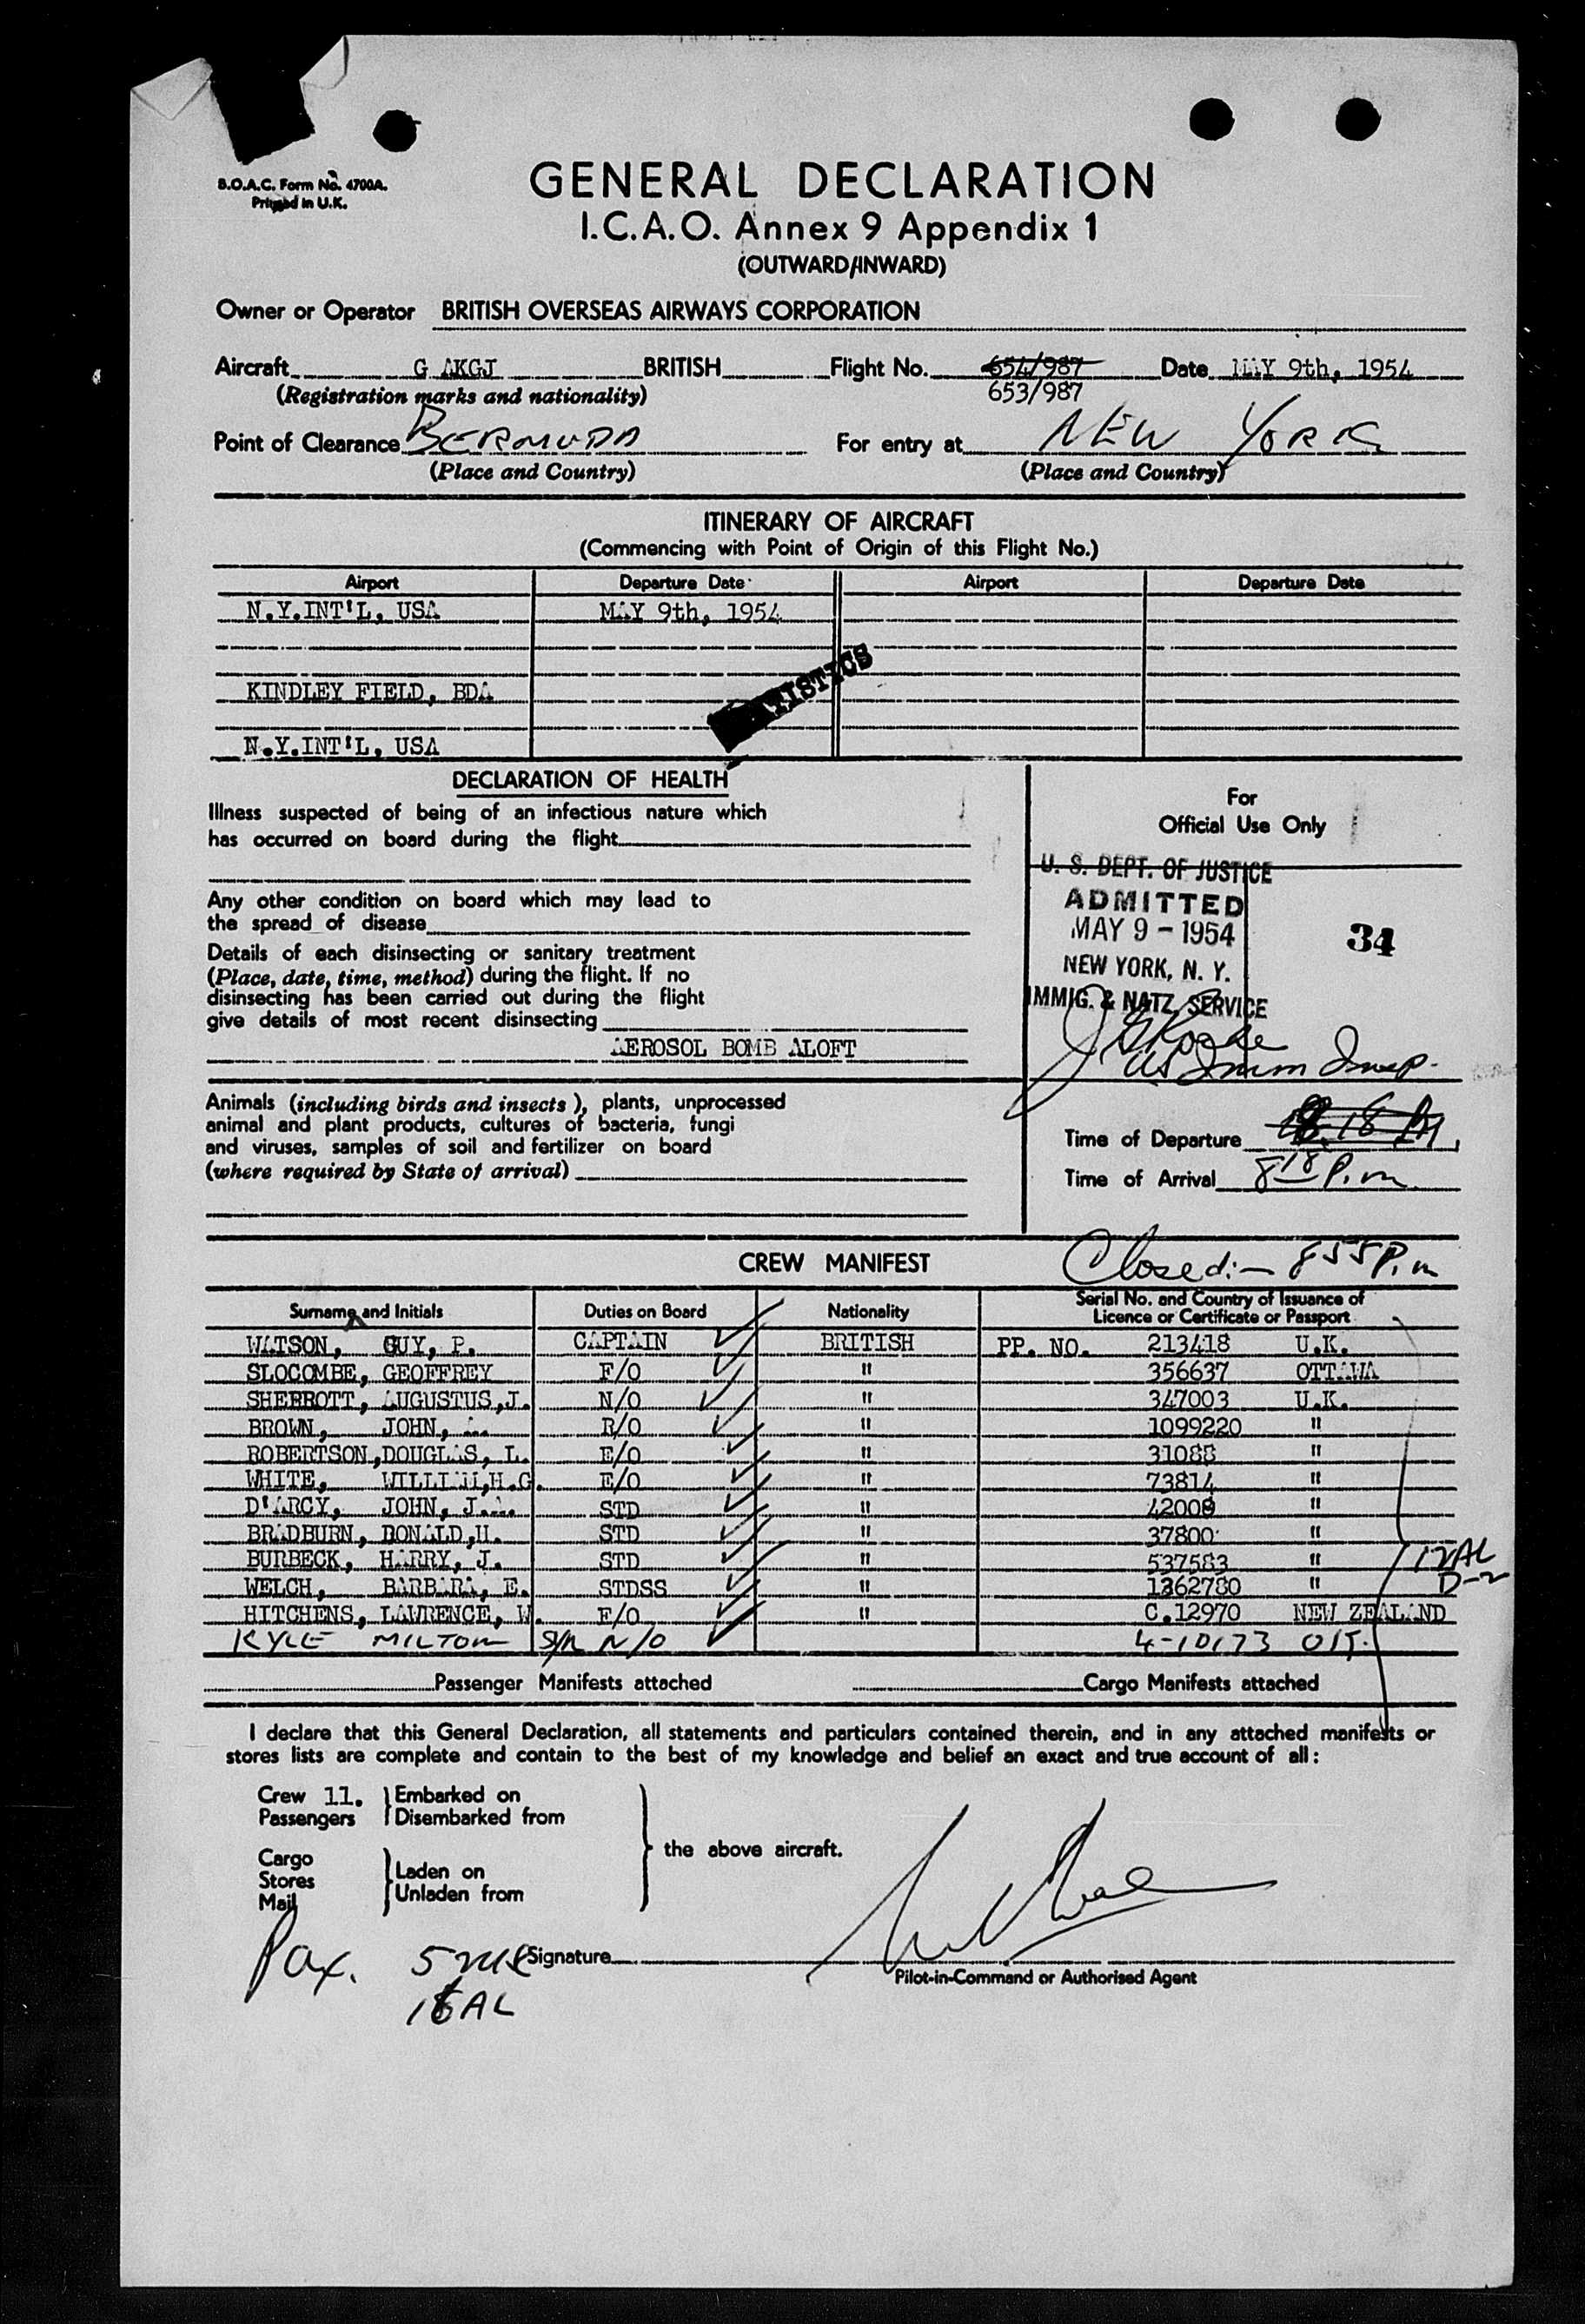 B.O.A.C. Form No. 4700A.
Printed in U.K.
GENERAL DECLARATION
I.C.A.O. Annex 9 Appendix 1
(OUTWARD/INWARD)
Owner or Operator BRITISH OVERSEAS AIRWAYS CORPORATION
Aircraft G AKGJ BRITISH Flight No. 654/987 Date MAY 9th, 1954
(Registration marks and nationality) 653/987
Point of Clearance BERMUDA For entry at NEW YORK
(Place and Country) (Place and Country)
ITINERARY OF AIRCRAFT
(Commencing with Point of Origin of this Flight No.)
Airport Departure Date Airport Departure Date
N.Y.INT'L, USA MAY 9th, 1954
KINDLEY FIELD, BDA
N.Y.INT'L, USA
DECLARATION OF HEALTH
Illness suspected of being of an infectious nature which
has occurred on board during the flight
Any other condition on board which may lead to
the spread of disease
Details of each disinsecting or sanitary treatment
(Place, date, time, method) during the flight. If no
disinsecting has been carried out during the flight
give details of most recent disinsecting
AEROSOL BOMB ALOFT
Animals (including birds and insects), plants, unprocessed
animal and plant products, cultures of bacteria, fungi
and viruses, samples of soil and fertilizer on board
(where required by State of arrival)
For
Official Use Only
U. S. DEPT. OF JUSTICE
ADMITTED
MAY 9 - 1954
NEW YORK, N. Y.
IMMIG. & NATZ. SERVICE
34
US Imm Insp.
Time of Departure 8.18 PM
Time of Arrival 8 18 P.m.
Closed:- 8 55 P.m
CREW MANIFEST
Surname and Initials Duties on Board Nationality Serial No. and Country of Issuance of
Licence or Certificate or Passport
WATSON, GUY, P. CAPTAIN BRITISH PP. NO. 213418 U.K.
SLOCOMBE, GEOFFREY F/O " 356637 OTTAWA
SHERROTT, AUGUSTUS,J. N/O " 347003 U.K.
BROWN, JOHN, A. R/O " 1099220 "
ROBERTSON,DOUGLAS, L. E/O " 31088 "
WHITE, WILLIAM,H.G. E/O " 73814 "
D'ARCY, JOHN, J.A. STD " 42008 "
BRADBURN, DONALD,H. STD " 37800 "
BURBECK, HARRY, J. STD " 537583 "
WELCH, BARBARA, E. STDSS " 1362780 "
HITCHENS, LAWRENCE, W. F/O " C.12970 NEW ZEALAND
KYLE MILTON S/N N/O 4-10173 OTT.
12 AL
D-2
Passenger Manifests attached Cargo Manifests attached
I declare that this General Declaration, all statements and particulars contained therein, and in any attached manifests or
stores lists are complete and contain to the best of my knowledge and belief an exact and true account of all:
Crew 11. Embarked on
Passengers Disembarked from
the above aircraft.
Cargo
Stores Laden on
Mail Unladen from
Pax. 5
18 AL
Signature
Pilot-in-Command or Authorised Agent